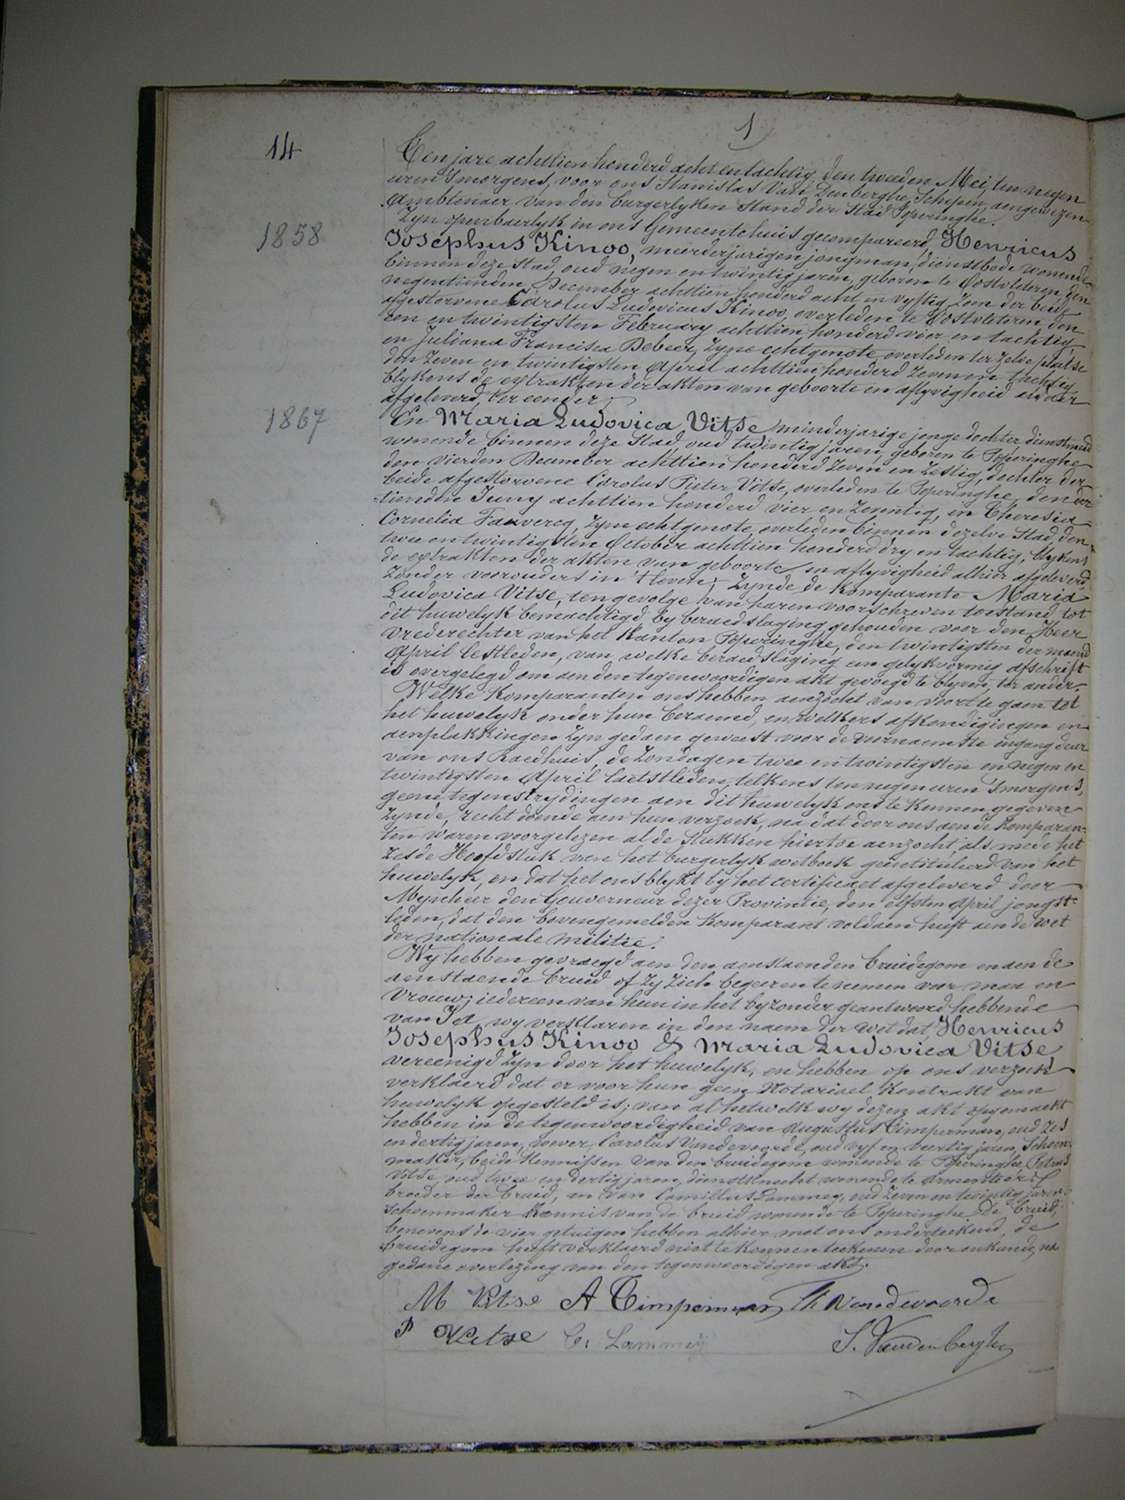 1
14
Ten jare achttien honderd acht en tachtig, den tweeden Mei, ten negen
uren 's morgens, voor ons Stanislas Van Den berghe, Schepen, aengewezen
Ambtenaer van den burgerlyken Stand der Stad Poperinghe.
Zyn openbaerlyk in ons Gemeentehuis gecompareerd, Henricus
1858
Josephus Kinoo, meerderjarigen jongman, dienstbode wonende
binnen deze stad, oud negen en twintig jaren, geboren te Oostvleteren, den
negentienden December achttien honderd acht en vyftig, zoon der beide
afgestorvene Carolus Ludovicus Kinoo, overleden te Oostvleteren, den
een en twintigsten February achttien honderd vier en tachtig
en Juliana Francisca Debeer, zyne echtgenote, overleden ter zelve plaetse
den zeven en twintigsten April achttien honderd zeven en
blykens de extrakten der akten van geboorte en aflyvigheid
afgeleverd, ter eender
1867
En Maria Ludovica Vitse, minderjarige jonge dochter dienstmeid
wonende binnen deze Stad, oud twintig jaren, geboren te Poperinghe
den vierden December achttien honderd zeven en zestig, dochter der
beide afgestorvene Carolus Pieter Vitse, overleden te Poperinghe, den
tienden Juny achttien honderd vier en zeventig, en Theresia
Cornelia Fauvercq, zyne echtgenote, overleden binnen dezelve Stad, den
twee en twintigsten October achttien honderd dry en tachtig, blykens
de extrakten der akten van geboorte en aflyvigheid alhier afgeleverd,
zonder voorouders in 't leven, zynde de komparante Maria
Ludovica Vitse, ten gevolge van haren voorschreven toestand tot
dit huwelyk bemachtigd by beraedslaging gehouden voor den Heer
Vrederechter van het Kanton Poperinghe, den twintigsten der maend
April lestleden, van welke beraedslaging een gelykvormig afschrift
is overgelegd om aen den tegenwoordigen akt gevoegd te blyven, ter ander.
Welke komparanten ons hebben aenzocht van voort te gaen tot
het huwelyk onder hun beraemd, en welkers afkondigingen en
aenplakkingen zyn gedaen geweest voor de vornaemste ingang deur
van ons Raedhuis, de Zondagen twee en twintigsten en negen en
twintigsten April laetstleden, telkens ten negen uren 's morgens,
geene tegenstrydingen aen dit huwelyk ons te kennen gegeven
zynde, recht doende aen hun verzoek, na dat door ons aen de komparan-
ten waren voorgelezen al de stukken hiertoe aenzocht, als mede het
zesde Hoofdstuk van het burgerlyk wetboek geintituleerd van het
huwelyk, en dat het ons blykt by het certificaet afgeleverd door
Mynheer den Gouverneur dezer Provincie, den elfsten April jongst-
leden, dat den bovengemelden komparant voldaen heeft aen de wet
der nationale militie.
Wy hebben gevraegd aen den aenstaenden bruidegom en aen de
aenstaende bruid of zy zich begeeren te nemen voor man en
vrouw; iedereen van hun in het byzonder geantwoord hebbende
van Ja, wy verklaren in den naem der wet dat Henricus
Josephus Kinoo & Maria Ludovica Vitse
vereenigd zyn door het huwelyk, en hebben op ons verzoek
verklaerd dat er voor hun geen Notarieel Kontrakt van
huwelyk opgesteld is; van al hetwelk wy dezen akt opgemaekt
hebben in de tegenwoordigheid van Augustus Timperman, oud zes
en dertig jaren, wever, Carolus Vandevoorde, oud vyf en veertig jaren, Schoen-
maker, beide kennissen van den bruidegom wonende te Poperinghe, Petrus
Vitse, oud twee en dertig jaren, dienstknecht wonende te
broeder der bruid, en van Camillus Lammey, oud zeven en twintig jaren,
schoenmaker kennis van de bruid, wonende te Poperinghe. De bruid,
benevens de vier getuigen hebben alhier met ons onderteekend, de
bruidegom heeft verklaerd niet te konnen teekenen door onkunde, na
gedane overlezing van den tegenwoordigen akt.
M Vitse A Timperman Ch Vandevoorde
P Vitse C. Lammey S. Vandenberghe